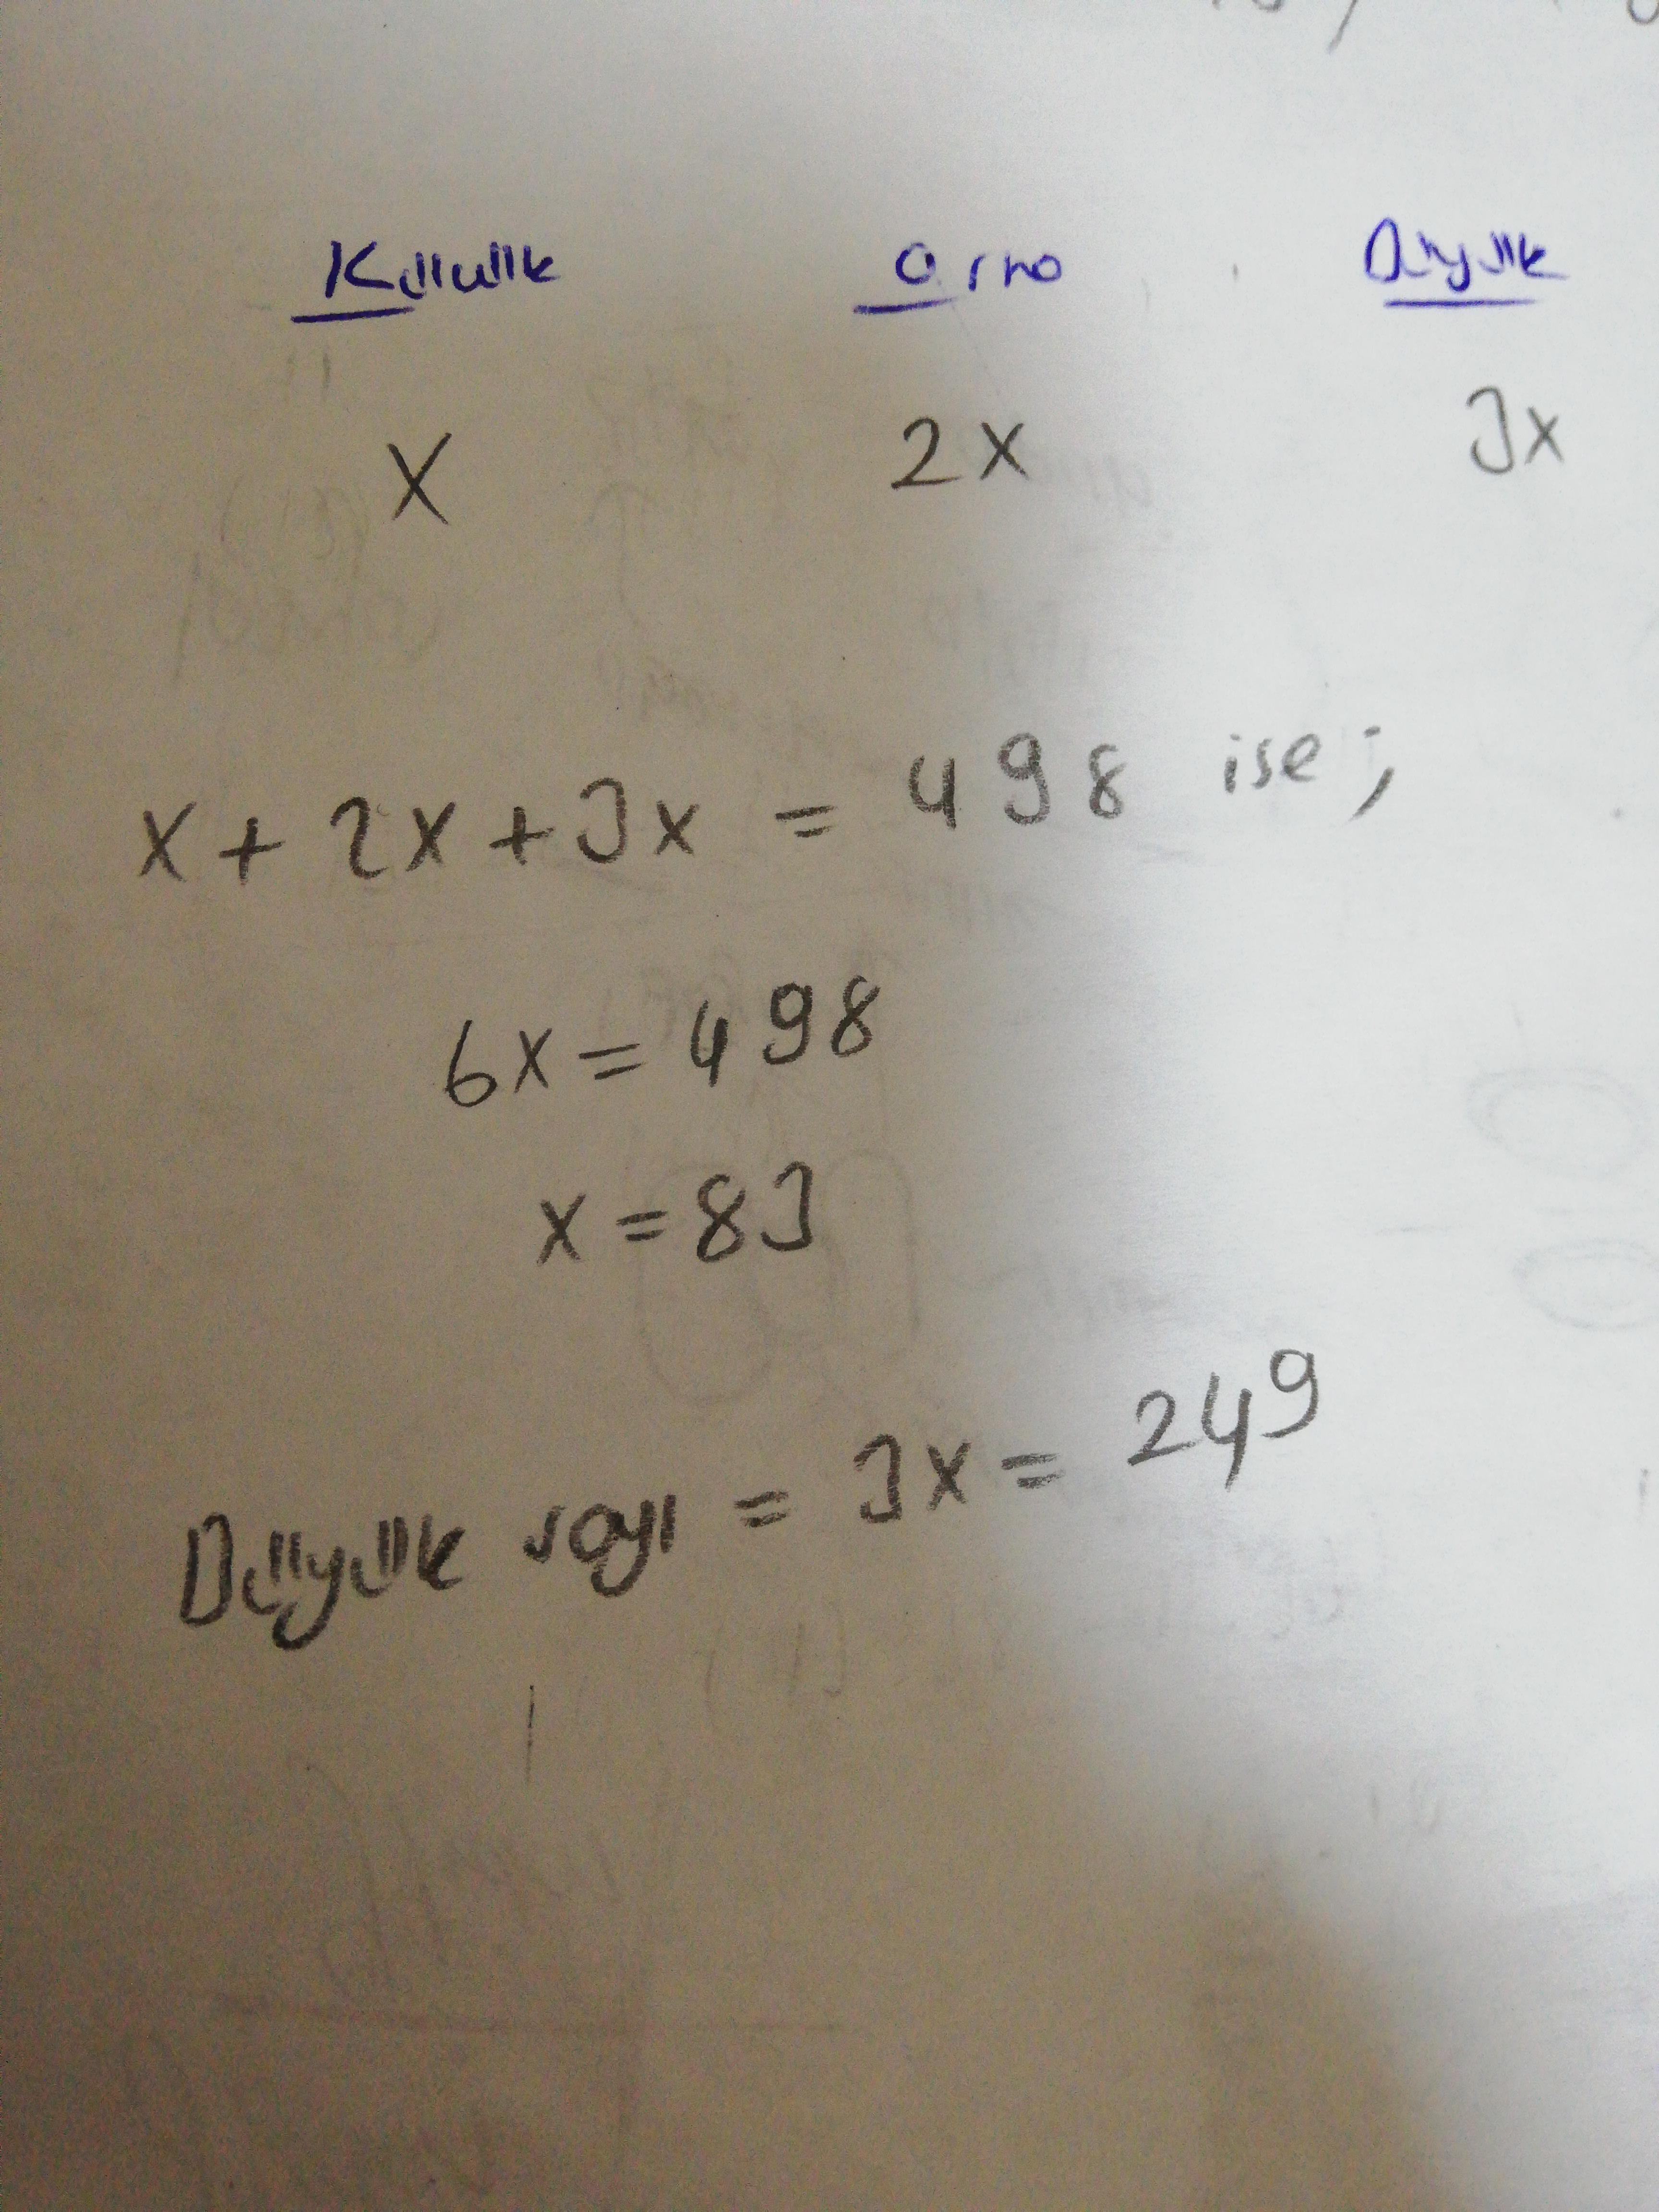 Küçük Orta Büyük
x 2x 3x
x + 2x + 3x = 498 ise;
6x = 498
x = 83
Büyük sayı = 3x = 249